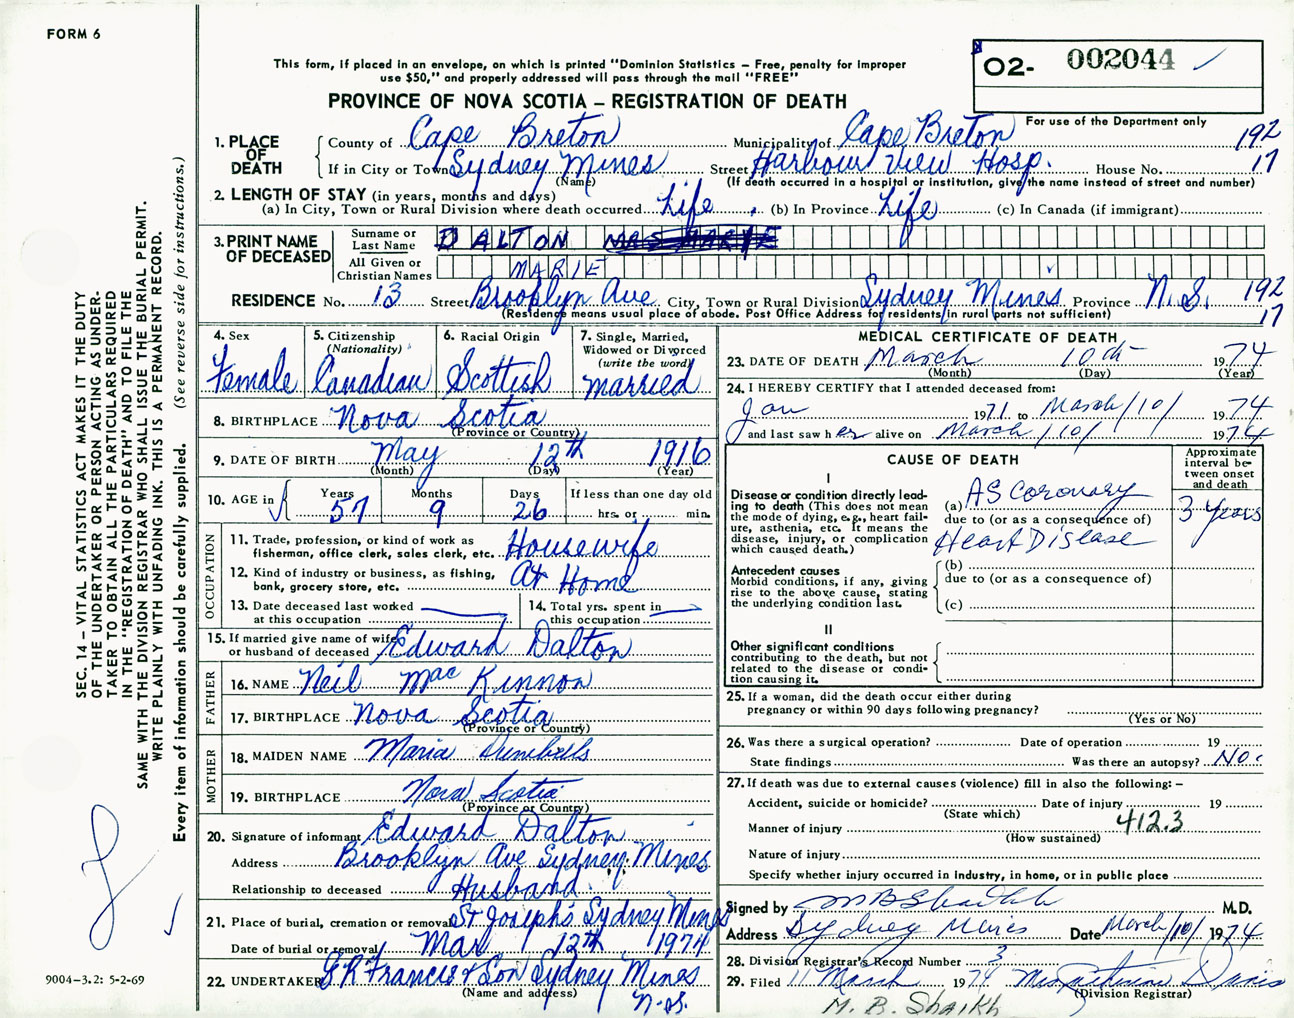 FORM 6
This form, if placed in an envelope, on which is printed "Dominion Statistics – Free, penalty for improper
use $50," and properly addressed will pass through the mail "FREE"
PROVINCE OF NOVA SCOTIA – REGISTRATION OF DEATH
O2- 002044 ✓
For use of the Department only
SEC. 14 – VITAL STATISTICS ACT MAKES IT THE DUTY
OF THE UNDERTAKER OR PERSON ACTING AS UNDER-
TAKER TO OBTAIN ALL THE PARTICULARS REQUIRED
IN THE "REGISTRATION OF DEATH" AND TO FILE THE
SAME WITH THE DIVISION REGISTRAR WHO SHALL ISSUE THE BURIAL PERMIT.
WRITE PLAINLY WITH UNFADING INK. THIS IS A PERMANENT RECORD.
Every item of information should be carefully supplied. (See reverse side for instructions.)
1. PLACE OF DEATH
County of Cape Breton Municipality of Cape Breton 192
If in City or Town Sydney Mines Street Harbour View Hosp. House No. 17
(Name) (If death occurred in a hospital or institution, give the name instead of street and number)
2. LENGTH OF STAY (in years, months and days)
(a) In City, Town or Rural Division where death occurred Life. (b) In Province Life (c) In Canada (if immigrant)
3. PRINT NAME OF DECEASED
Surname or Last Name DALTON MRS MARIE
All Given or Christian Names MARIE
RESIDENCE No. 13 Street Brooklyn Ave City, Town or Rural Division Sydney Mines Province N.S. 192
(Residence means usual place of abode. Post Office Address for residents in rural parts not sufficient) 17
4. Sex Female
5. Citizenship (Nationality) Canadian
6. Racial Origin Scottish
7. Single, Married, Widowed or Divorced (write the word) Married
8. BIRTHPLACE Nova Scotia
(Province or Country)
9. DATE OF BIRTH May 12th 1916
(Month) (Day) (Year)
10. AGE in Years 57 Months 9 Days 26 If less than one day old
hrs. or min.
OCCUPATION
11. Trade, profession, or kind of work as
fisherman, office clerk, sales clerk, etc. Housewife
12. Kind of industry or business, as fishing,
bank, grocery store, etc. At Home
13. Date deceased last worked
at this occupation
14. Total yrs. spent in
this occupation
15. If married give name of wife
or husband of deceased Edward Dalton
FATHER
16. NAME Neil MacKinnon
17. BIRTHPLACE Nova Scotia
(Province or Country)
MOTHER
18. MAIDEN NAME Maria
19. BIRTHPLACE Nova Scotia
(Province or Country)
20. Signature of informant Edward Dalton
Address Brooklyn Ave Sydney Mines
Relationship to deceased Husband
21. Place of burial, cremation or removal St Joseph's Sydney Mines
Date of burial or removal Mar 12th 1974
22. UNDERTAKER G.R. Francis & Son Sydney Mines
(Name and address) N.S.
MEDICAL CERTIFICATE OF DEATH
23. DATE OF DEATH March 10th 1974
(Month) (Day) (Year)
24. I HEREBY CERTIFY that I attended deceased from:
Jan 1971 to March/10/ 1974
and last saw her alive on March/10/ 1974
CAUSE OF DEATH
Approximate interval between onset and death
I
Disease or condition directly lead-
ing to death (This does not mean
the mode of dying, e.g., heart fail-
ure, asthenia, etc. It means the
disease, injury, or complication
which caused death.)
(a) AS Coronary 3 years
due to (or as a consequence of)
Heart Disease
Antecedent causes
Morbid conditions, if any, giving
rise to the above cause, stating
the underlying condition last.
(b)
due to (or as a consequence of)
(c)
II
Other significant conditions
contributing to the death, but not
related to the disease or condi-
tion causing it.
25. If a woman, did the death occur either during
pregnancy or within 90 days following pregnancy?
(Yes or No)
26. Was there a surgical operation? Date of operation 19
State findings Was there an autopsy? No.
27. If death was due to external causes (violence) fill in also the following: –
Accident, suicide or homicide? Date of injury 19
(State which)
Manner of injury 412.3
(How sustained)
Nature of injury
Specify whether injury occurred in industry, in home, or in public place
Signed by M B Shaikh M.D.
Address Sydney Mines Date March/10/ 1974
28. Division Registrar's Record Number 3
29. Filed 11 March 1974 Mrs Davis
(Division Registrar)
M. B. Shaikh
9004-3.2: 5-2-69